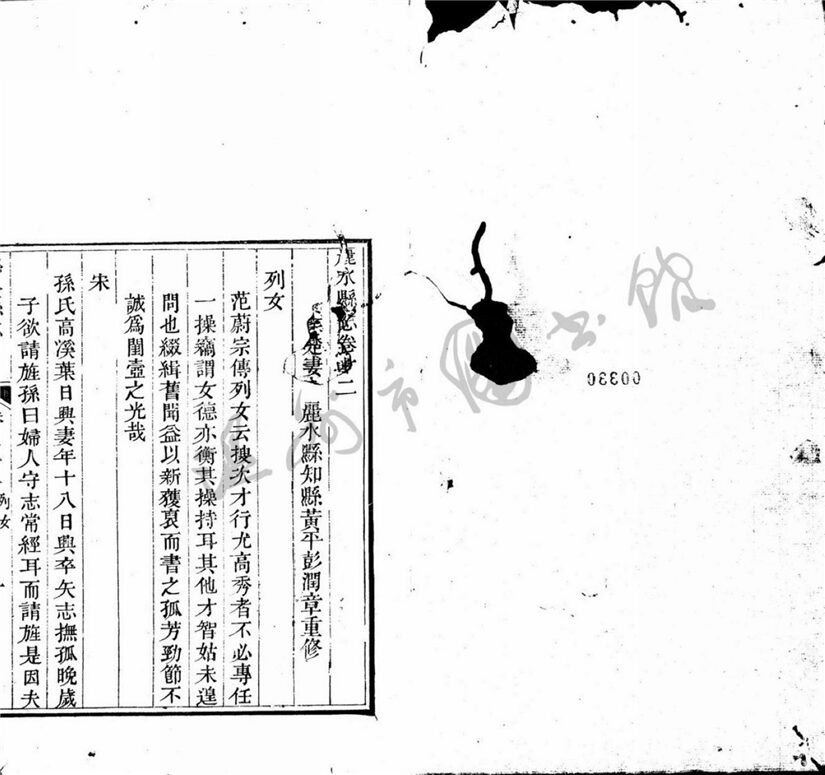 00330
麗水縣志卷十二
麗水縣知縣黃平彭潤章重修
列女
范蔚宗傳列女云搜次才行尤高秀者不必專任
一操竊謂女德亦衡其操持耳其他才智姑未遑
問也綴緝舊聞益以新獲裒而書之孤芳勁節不
誠爲閨壼之光哉
宋
孫氏高溪葉日興妻年十八日興卒矢志撫孤晚歲
子欲請旌孫曰婦人守志常經耳而請旌是因夫
列女
市圖书馆